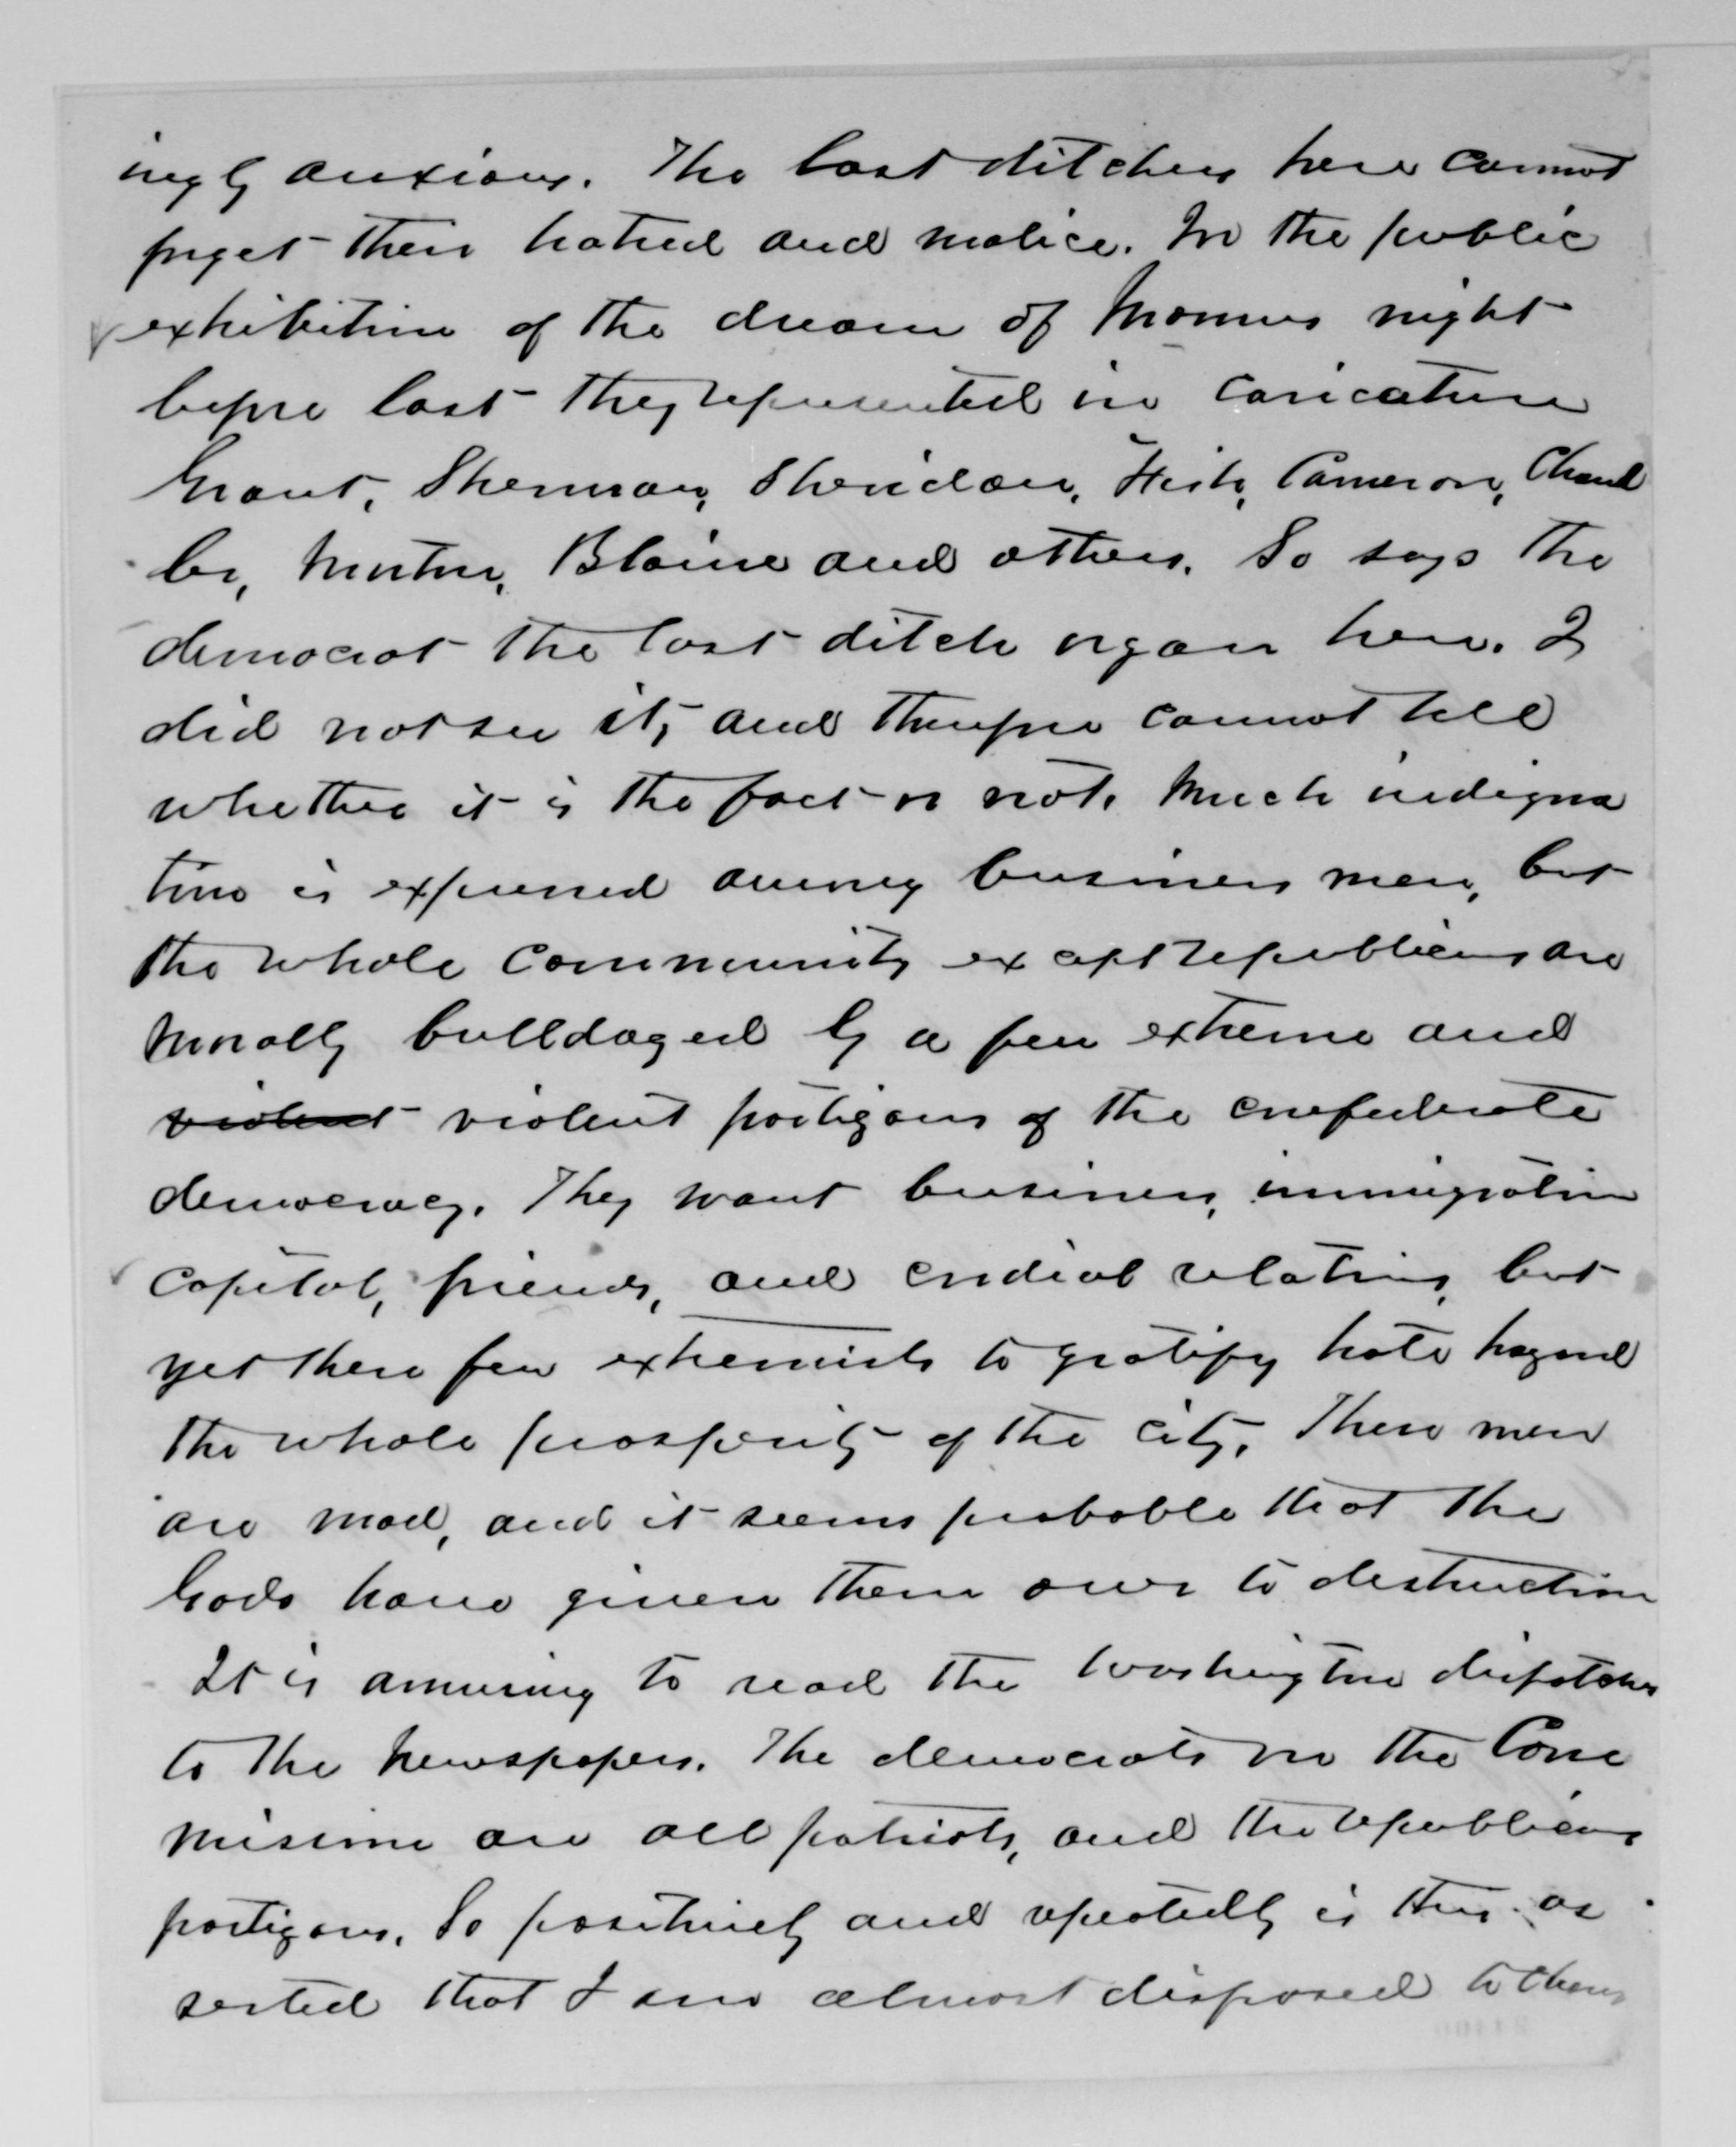 ingly anxious. The last ditchers here cannot
forget their hatred and malice. In the public
exhibition of the dream of Momus night
before last they represented in caricature
Grant, Sherman, Sheridan, Fish, Cameron, Chand
ler, Morton, Blaine and others. So says the
democrat the last ditch organ here. I
did not see it, and therefore cannot tell
whether it is the fact or not. Much indigna
tion is expressed among business men, but
the whole community except republicans are
morally bulldozed by a few extreme and
violent violent partizans of the confederate
democracy. They want business, immigration
capital, friends, and cordial relations, but
yet these few extremists to gratify hate hazard
the whole prosperity of the city. These men
are mad, and it seems probable that the
Gods have given them over to destruction
It is amusing to read the Washington dispatches
to the Newspapers. The democrats on the Com
mission are all patriots, and the republicans
partizans. So positively and repeatedly is this as
serted that I am almost disposed to